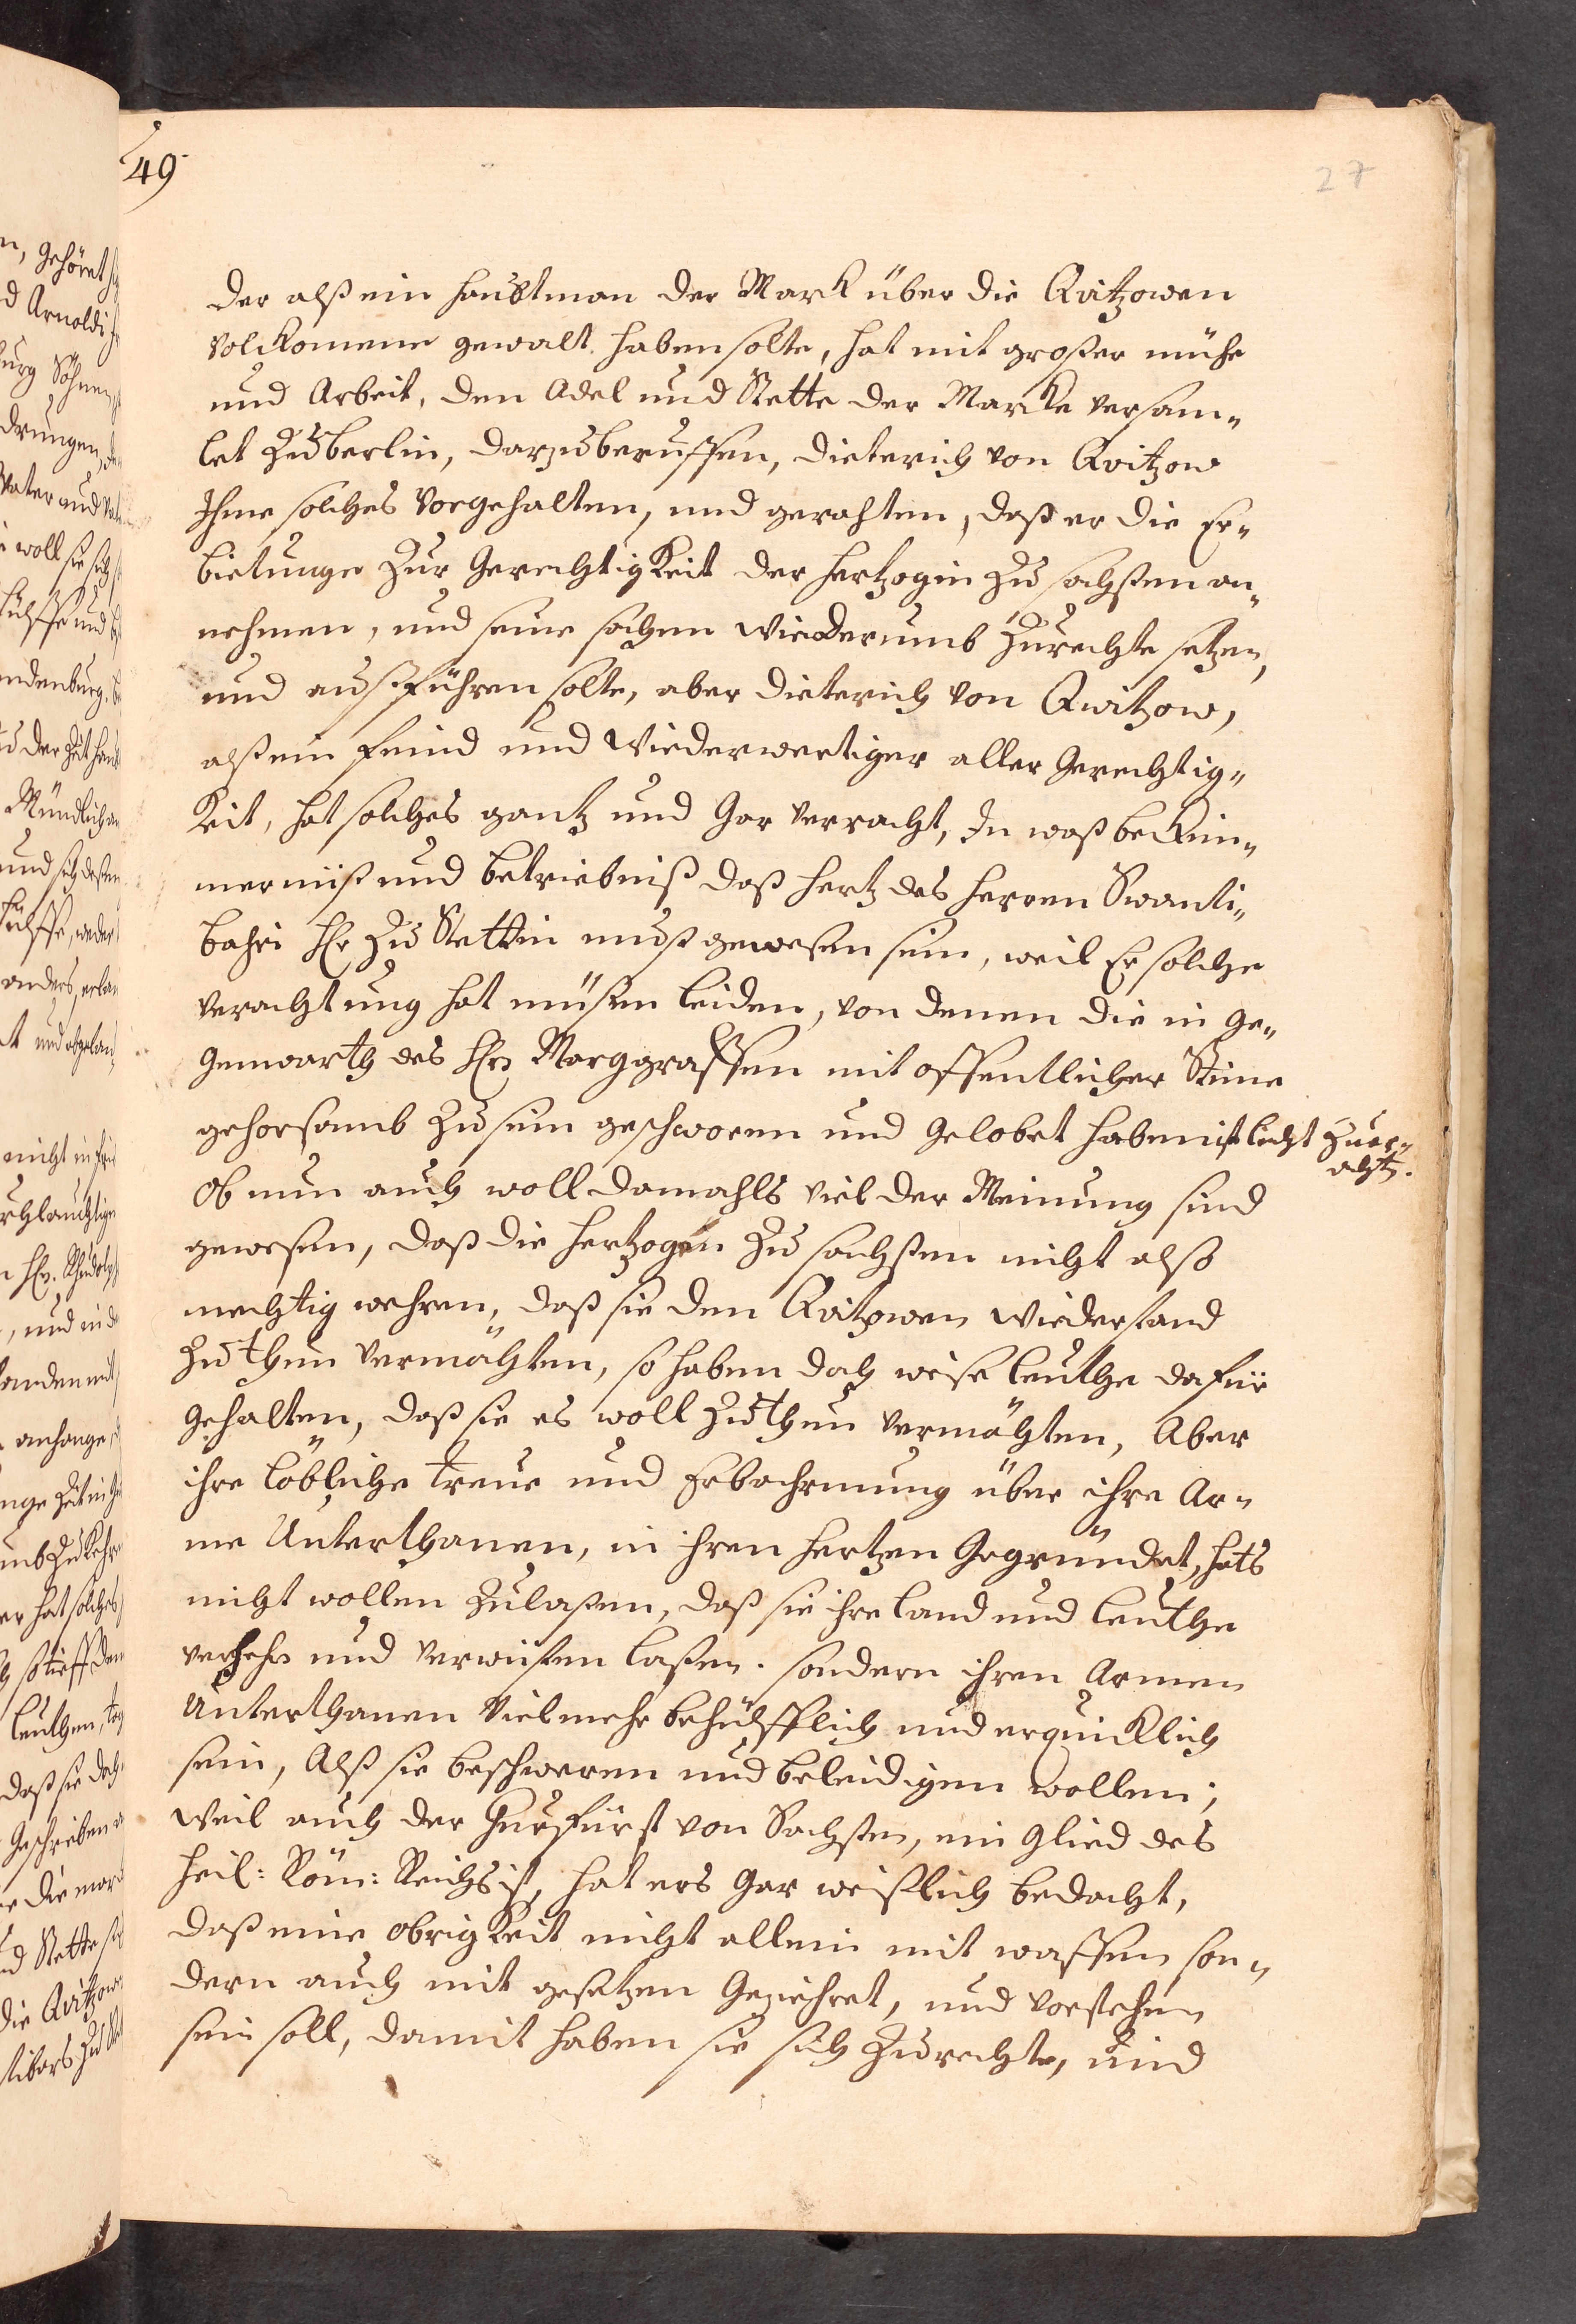 49
27
der alß ein Haubtman der Marck über die Qvitzowen
volckomene gewalt haben solte, hat mit großer mühe
und Arbeit, den Adel und Stette der Marcke versam„
let Zu berlin, darzu beruffen, Dieterich von Qvitzow
Ihme solches vorgehalten, und gerahten, daß er die Er„
bietunge Zur Gerechtigkeit der Hertzogin Zu sachßen an„
nehmen, und seine sachen wiederumb Zurechte setzen,
und außführen solte, aber Dieterich von Qwitzow,
alß ein feind und Wiederwertiger aller Gerechtig„
keit, hat solches gantz und Gar verracht, In waß beküm„
mernniß und betriebniß daß Hertz des Herren Swanti„
bahri Hr Zu Stettin muß gewesen sein, weil Er solche
verachtung hat müßen leiden, von denen die in Ge„
genwarth des Hrn Marggraffen mit offentlicher Stime
gehorsamb Zu sein geschworen und gelobet haben ist leicht Zu er„
acht.
Ob nun auch woll damahls viel der Meinung sind
gewesen, daß die Hertzogen Zu sachßen nicht also
mechtig wehren, daß sie den Qvitzowen wiederstand
Zu thun vermöchten, so haben doch weise Leuthe dafür
gehalten, daß sie es woll Zu thun vermöchten, Aber
ihre löbliche treue und Erbahrmung über ihre Ar„
me Unterthanen, in ihren Hertzen Gegründet, hats
nicht wollen Zulaßen, daß sie ihre Land und Leuthe
und verwüsten laßen. sondern ihren Armen
Unterthanen vielmehr behülfflich und erquicklich
sein, Alß sie beschweren und beleidigen wollen;
Weil auch der Churfürst von Sachßen, ein Glied des
Heil: Röm: Reichs ist, hat ers Gar weißlich bedacht,
daß eine Obrigkeit nicht allein mit waffen son„
dern auch mit gesetzen Geziehret, und vorsehen
sein soll, damit haben sie sich Zu rechte, und